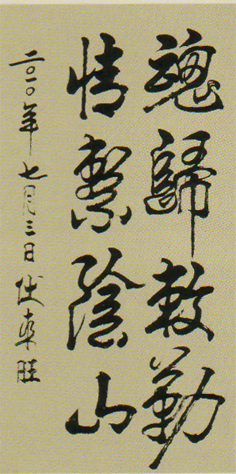 魂歸敕勒
情繫陰山
二〇一〇年七月三日